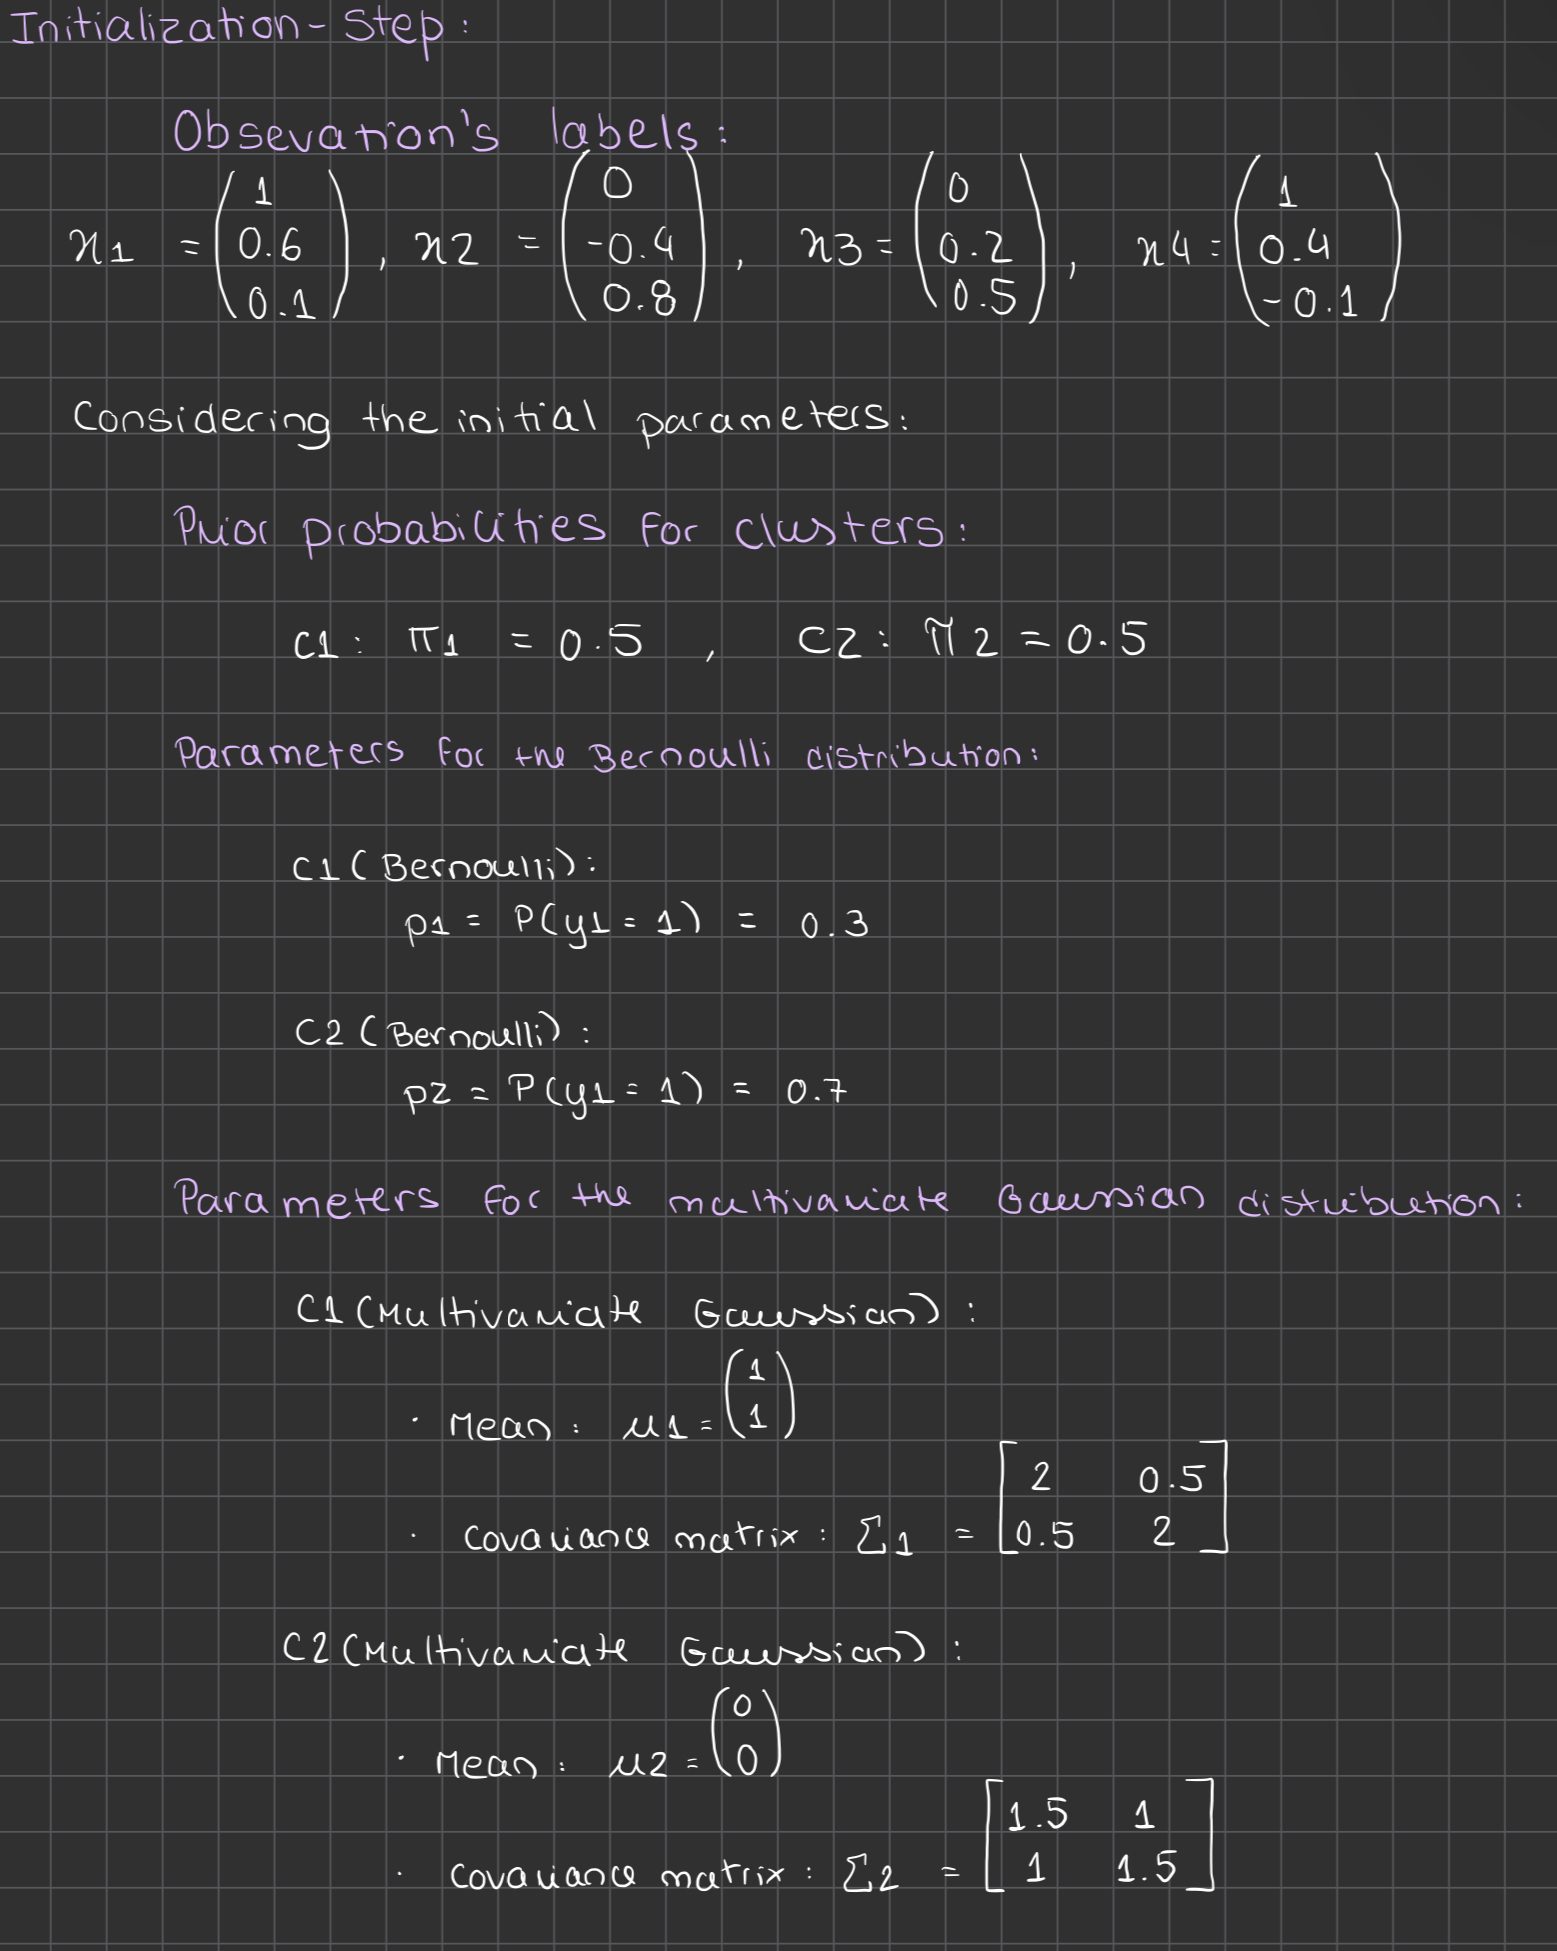 Initialization-Step:
Obsevation's labels:
x1 = (1 0.6 0.1), x2 = (0 -0.4 0.8), x3 = (0 0.2 0.5), x4 = (1 0.4 -0.1)
Considering the initial parameters:
Prior probabilities for clusters:
C1: π1 = 0.5, C2: π2 = 0.5
Parameters for the Bernoulli distribution:
C1 (Bernoulli):
p1 = P(y1 = 1) = 0.3
C2 (Bernoulli):
p2 = P(y1 = 1) = 0.7
Parameters for the multivariate Gaussian distribution:
C1 (Multivariate Gaussian):
· Mean: μ1 = (1 1)
· Covariance matrix: Σ1 = [2 0.5
0.5 2]
C2 (Multivariate Gaussian):
· Mean: μ2 = (0 0)
· Covariance matrix: Σ2 = [1.5 1
1 1.5]